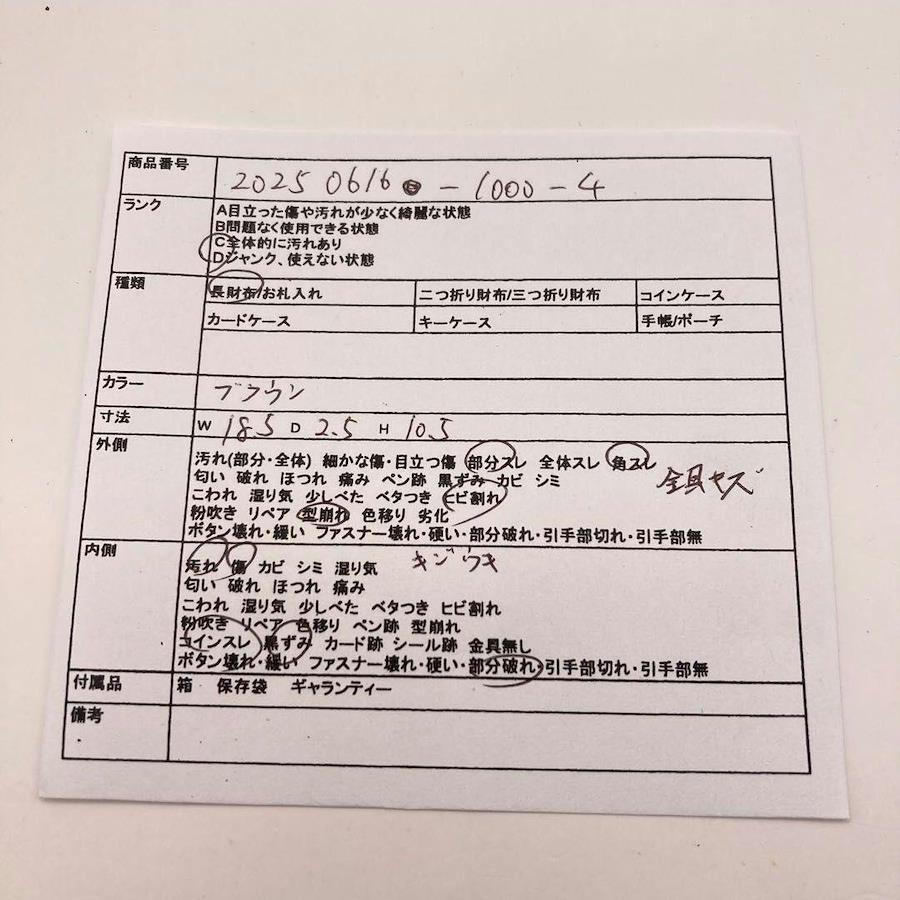 商品番号 20250616 - 1000 - 4
ランク
A目立った傷や汚れが少なく綺麗な状態
B問題なく使用できる状態
C全体的に汚れあり
Dジャンク、使えない状態
種類 長財布/お札入れ 二つ折り財布/三つ折り財布 コインケース
カードケース キーケース 手帳/ポーチ
カラー ブラウン
寸法 W 18.5 D 2.5 H 10.5
外側
汚れ(部分・全体) 細かな傷・目立つ傷 部分スレ 全体スレ 角スレ
匂い 破れ ほつれ 痛み ペン跡 黒ずみ カビ シミ 金具キズ
こわれ 湿り気 少しべた ベタつき ヒビ割れ
粉吹き リペア 型崩れ 色移り 劣化
ボタン壊れ・緩い ファスナー壊れ・硬い・部分破れ・引手部切れ・引手部無
内側
汚れ 傷 カビ シミ 湿り気 キジウキ
匂い 破れ ほつれ 痛み
こわれ 湿り気 少しべた ベタつき ヒビ割れ
粉吹き リペア 色移り ペン跡 型崩れ
コインスレ 黒ずみ カード跡 シール跡 金具無し
ボタン壊れ・緩い ファスナー壊れ・硬い・部分破れ・引手部切れ・引手部無
付属品 箱 保存袋 ギャランティー
備考